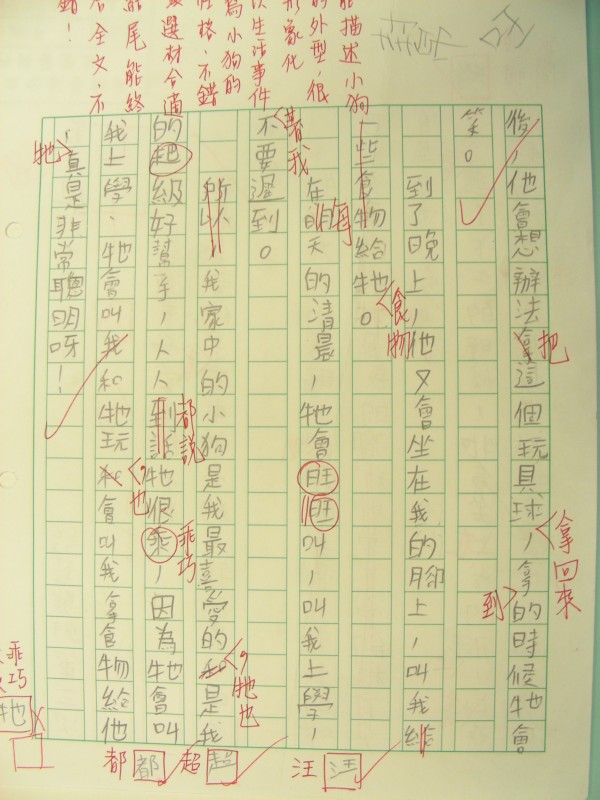 能描述小狗
的外型,很
形象化
以生活事件
為小狗的
性格,不錯
選材合適
尾能終
全文,不
錯!
後,他會想辦法拿這個玩具球,拿的時候牠會
把
拿回來
到
笑。
到了晚上,他又會坐在我的腳上,叫我給
一些食物給牠。
食物
在昨天的清晨,牠會旺旺叫,叫我上學,
每
不要遲到。
着我
所以我家中的小狗是我最喜愛的和是我
,牠也
的起級好幫手,人人到話牠很乘,因為牠會叫
都說
乖巧
我上學、牠會叫我和牠玩和會叫我拿食物給他
,也
!真是非常聰明呀!
牠
汪 汪
超 超
都 都
乖巧
牠